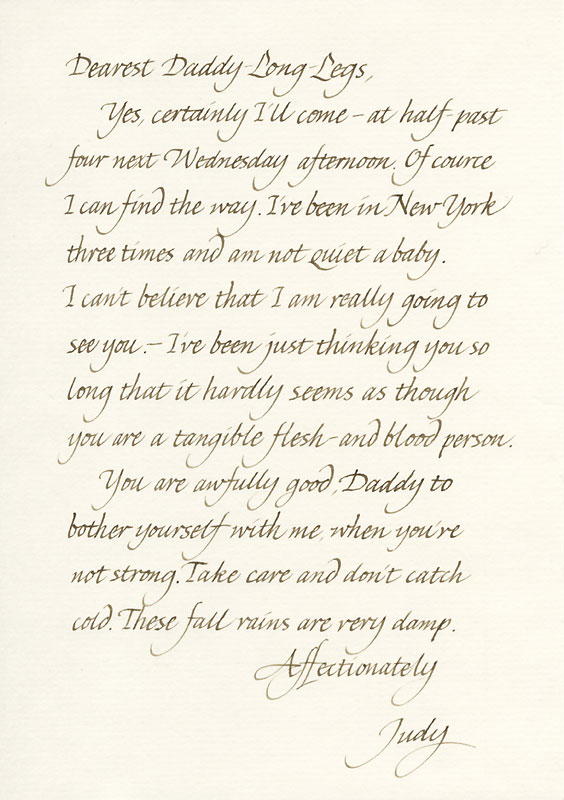 Dearest Daddy-Long-Legs,
Yes, certainly I'll come – at half-past
four next Wednesday afternoon. Of cource
I can find the way. I've been in New York
three times and am not quiet a baby.
I can't believe that I am really going to
see you. – I've been just thinking you so
long that it hardly seems as though
you are a tangible flesh-and blood person.
You are awfully good, Daddy to
bother yourself with me, when you're
not strong. Take care and don't catch
cold. These fall rains are very damp.
Affectionately
Judy